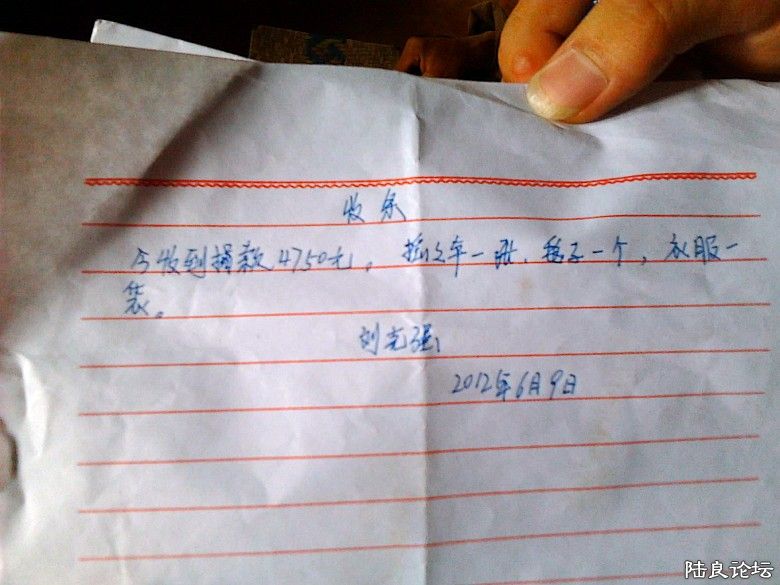 收条
今收到捐款4750元,摇么车一张、毯子一个,衣服一
袋。
刘克强
2012年6月9日
陆良论坛